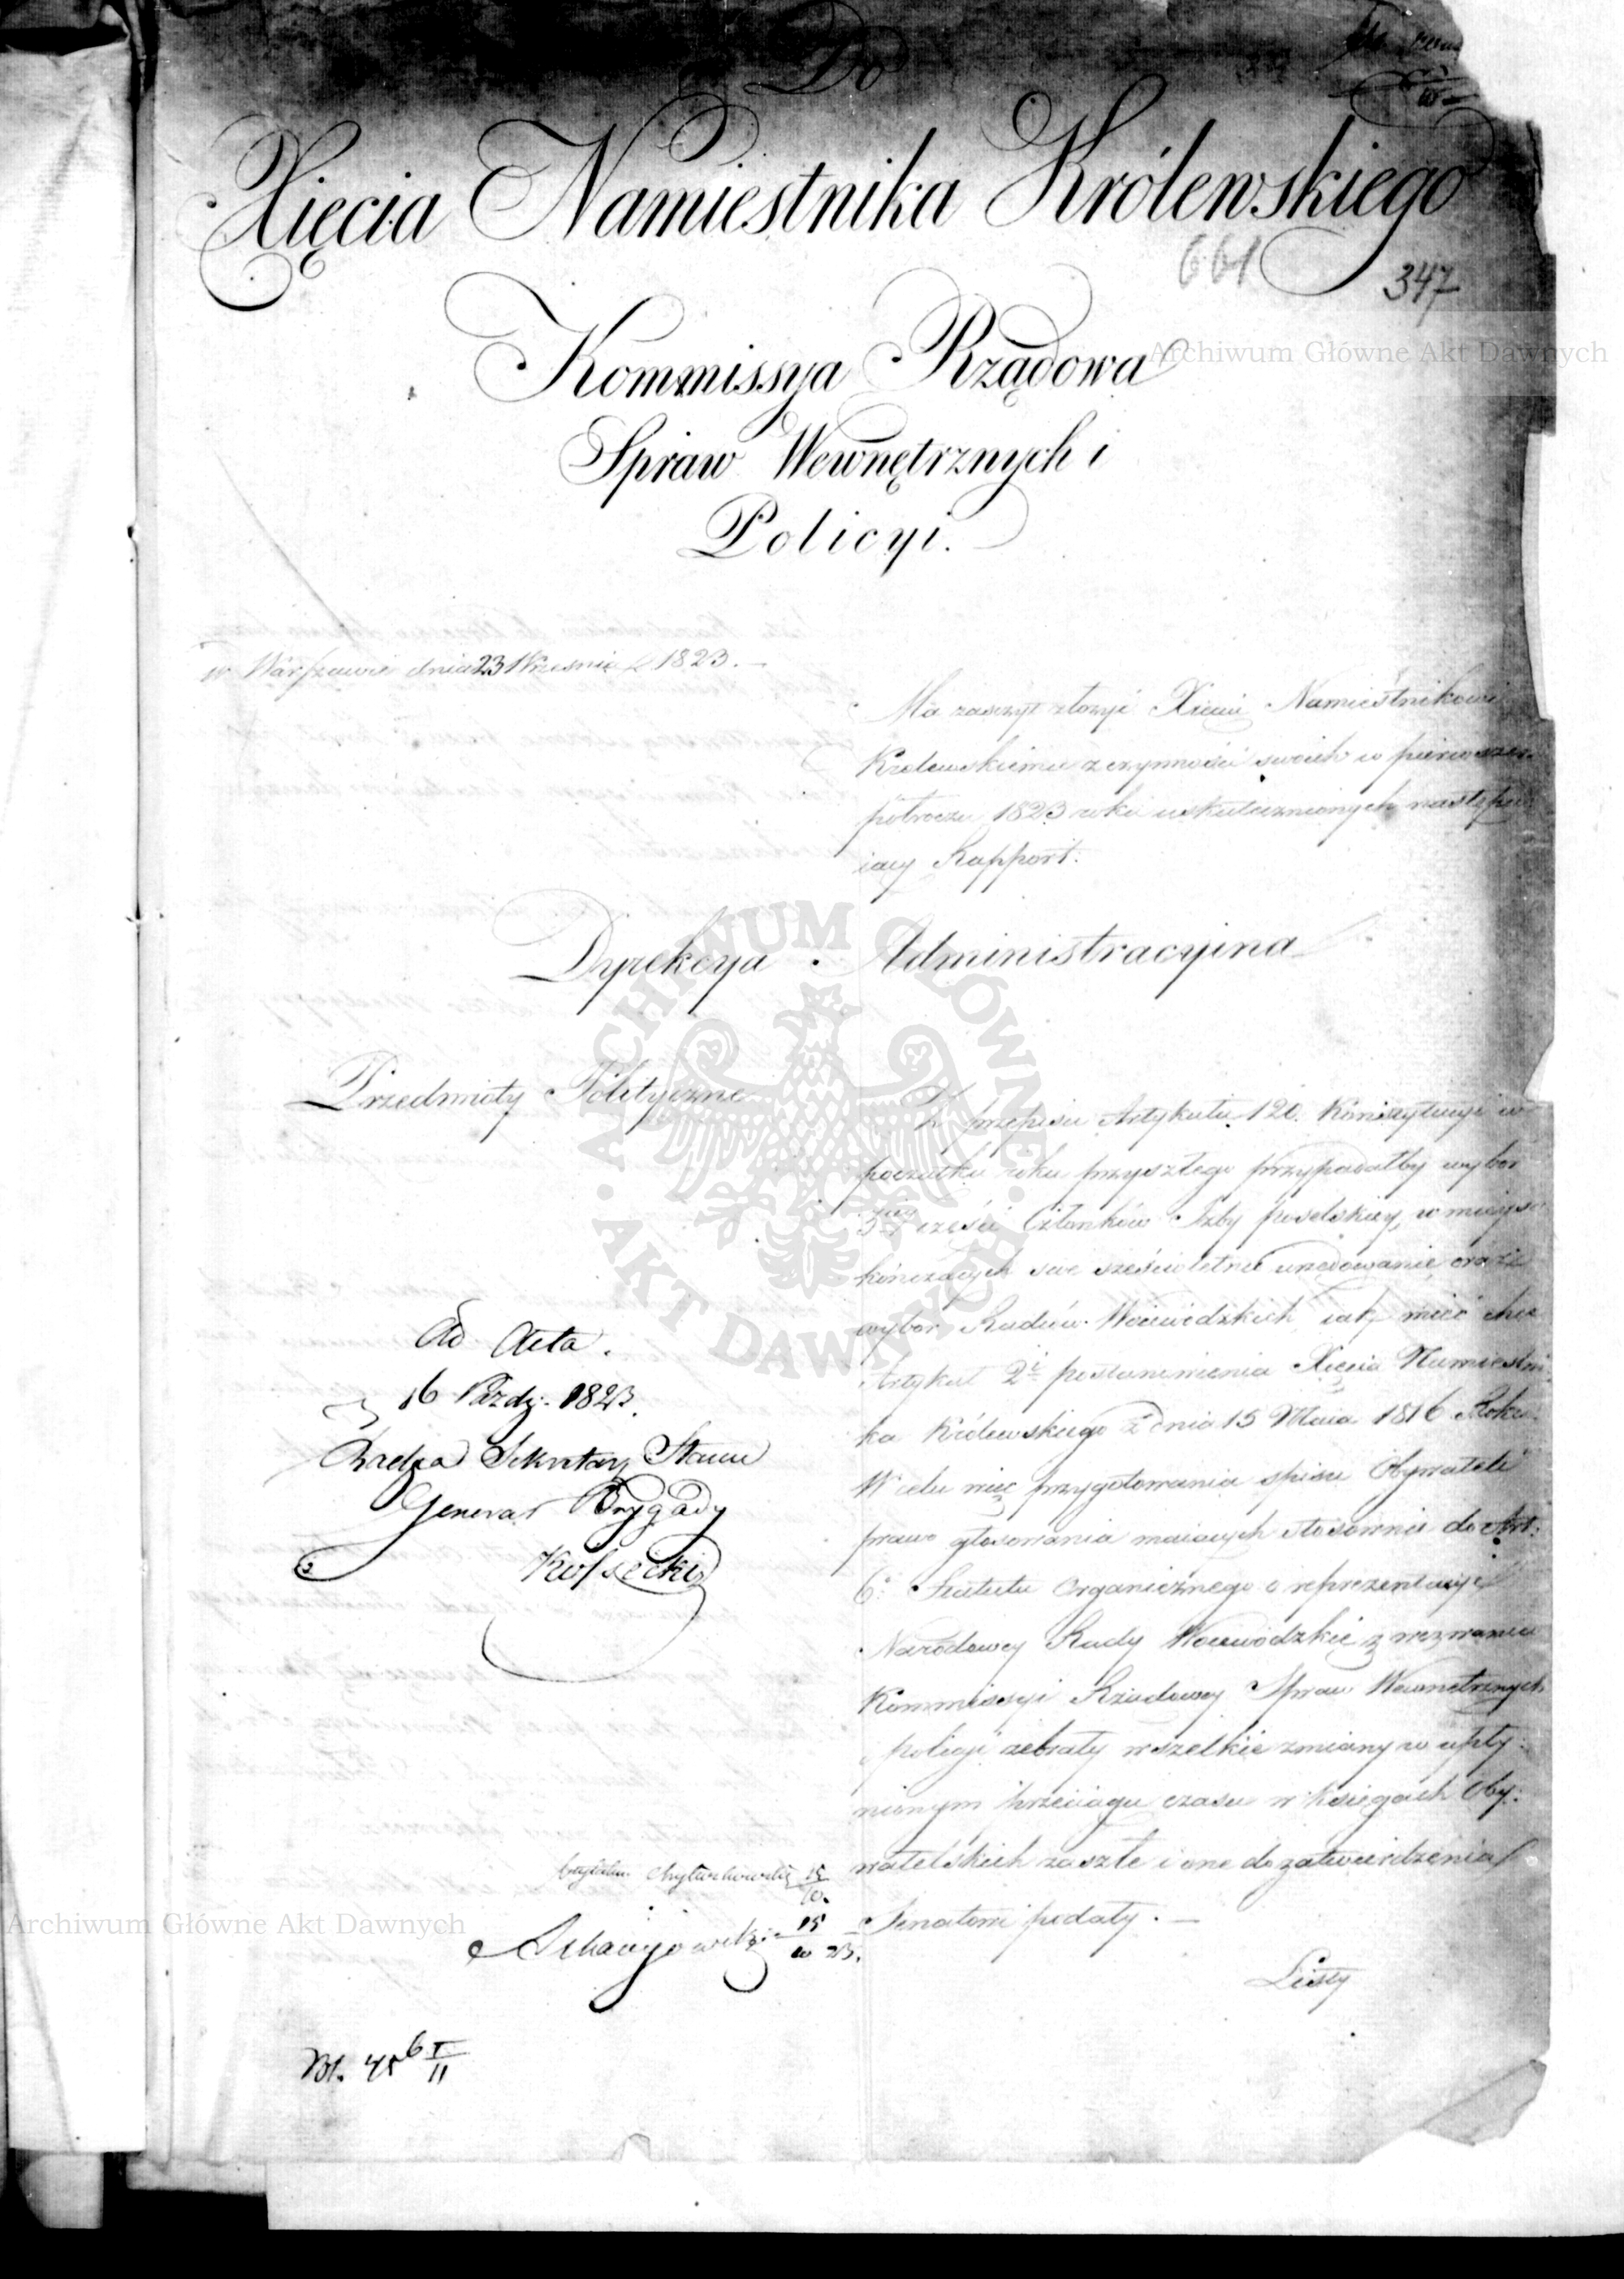 Do
Xięcia Namiestnika Królewskiego
661
347
Kommissya Rządowa
Spraw Wewnętrznych i
Policyi.
w Warszawie dnia 23 Września 1823. —
Ma zaszczyt złożyć Xięciu Namiestnikowi
Królewskiemu z czynności swoich w pierwszem
półroczu 1823 roku uskutecznionych następu
iący Rapport:
Dyrekcya Administracyina
Przedmioty Polityczne
Z przepisu Artykułu 120. Konstytucyi w
początku roku przyszłego przypadałby wybor
części Członków Izby poselskiey, w mieysce
kończących swe sześcioletnie urzędowanie, oraz
wybor Radców Woiewódzkich iak mieć chce
Artykuł 2i postanowienia Xięcia Namiestni
ka Królewskiego z dnia 15 Maia 1816 Roku.
W celu więc przygotowania spisu Obywateli
prawo głosowania maiących stosownie do Art:
6o Statutu Organicznego o reprezentacyi
Narodowey Rady Woiewódzkie z wezwania
Kommissyi Rządowey Spraw Wewnętrznych
i policyi zebrały wszelkie zmiany w upły:
nionym przeciągu czasu w księgach Oby:
watelskich zaszłe i one do zatwierdzenia
Senatowi podały. —
Listy
Ad Acta.
16 Paźdz. 1823.
Radca Sekretarz Stanu
Generał Brygady
Kossecki
czytałem 15
10.
15
10 23.
Archiwum Główne Akt Dawnych
Archiwum Główne Akt Dawnych
ARCHIWUM GŁÓWNE AKT DAWNYCH